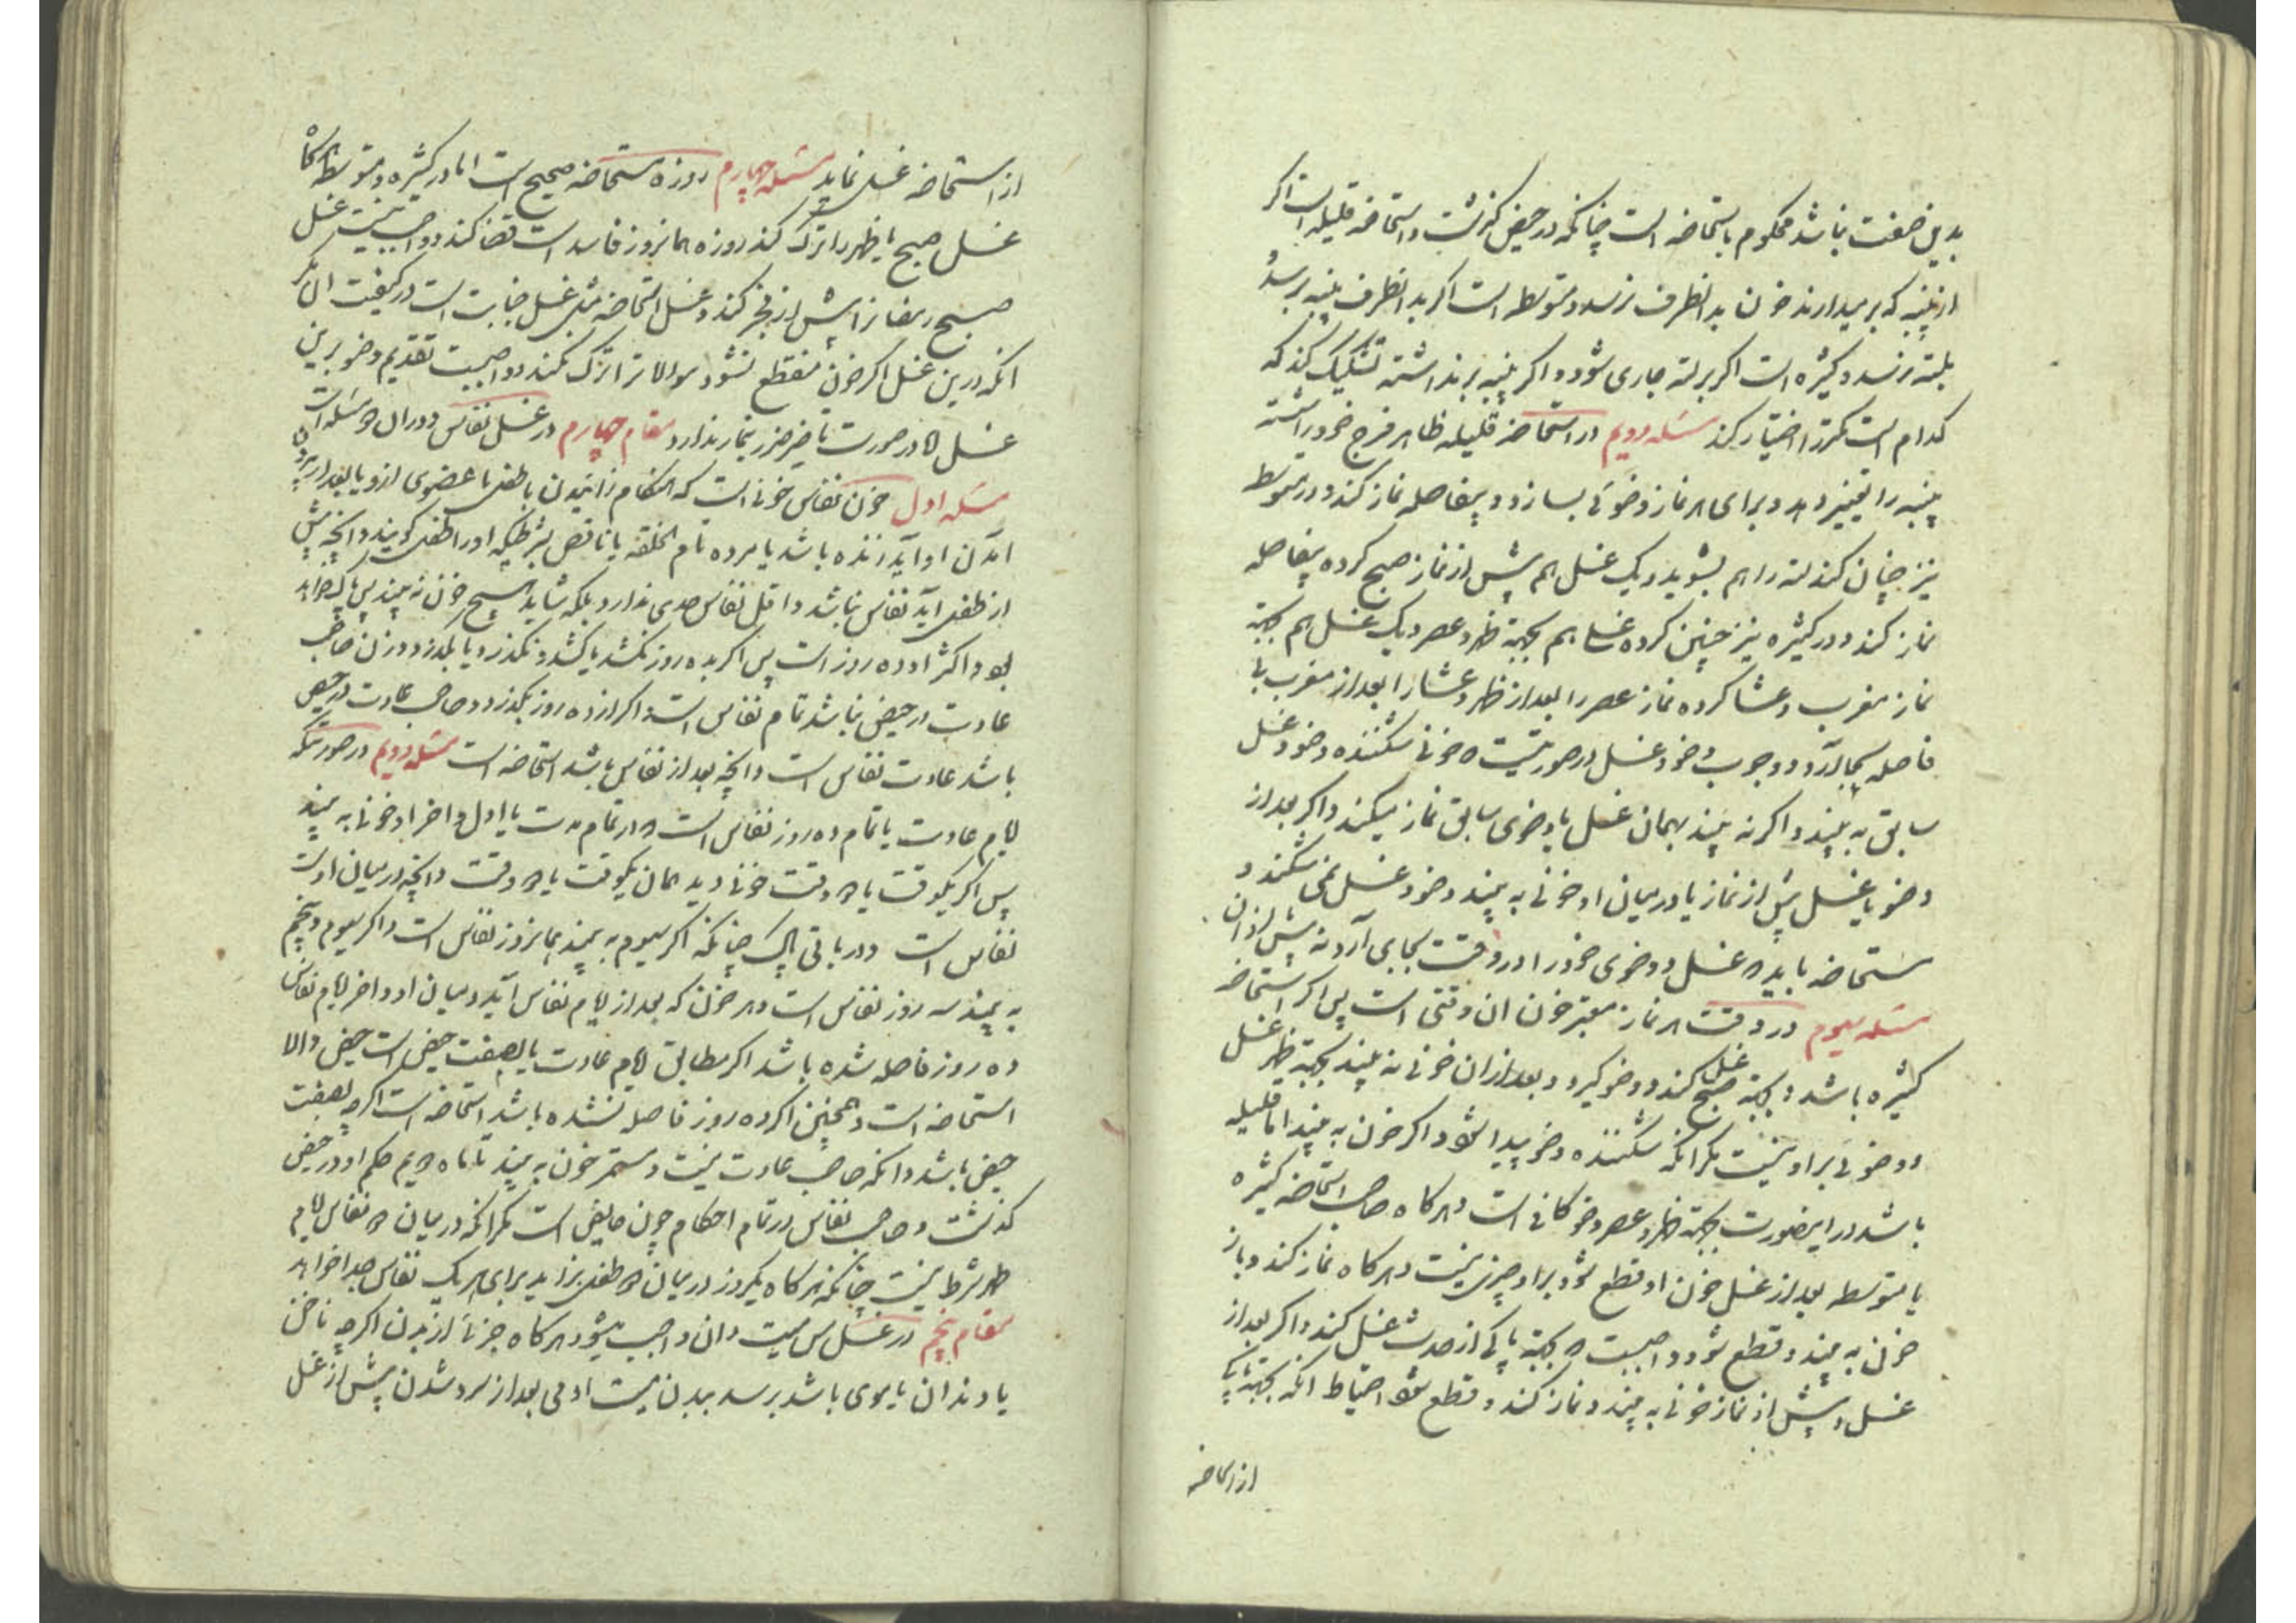 بدین صفت نباشد محکوم باستحاضه است چنانکه در حیض گذشت و استحاضه قلیله است اکر
از پنبه که برمیدارند خون بدانطرف نرسد و متوسطه است اکر بدانطرف پنبه برسد و
بلته نرسد و کثیره است اکر بر لته جاری شود و اکر پنبه برنداشته تشکیک کند که
کدام است کمتر را اختیار کند مسئله دویم در استحاضه قلیله ظاهر فرج خود را شسته
پنبه را تغییر دهد و برای هر نماز وضوئی بسازد و بیفاصله نماز کند و در متوسطه
نیز چنان کند لته را هم بشوید و یک غسل هم پیش از نماز صبح کرده بیفاصله
نماز کند و در کثیره نیز چنین کرده غسلی هم بجهته ظهر و عصر و یک غسل هم بجهته
نماز مغرب و عشا کرده نماز عصر را بعد از ظهر و عشا را بعد از مغرب بلا
فاصله بجا آرد و وجوب وضو و غسل در صورتیست که خونی شکننده وضو و غسل
سابق به بیند و اکر نه بیند بهمان غسل یا وضوی سابق نماز میکند و اکر بعد از
وضو یا غسل پیش از نماز یا در میان او خونی به بیند وضو و غسل نمی شکند و
مستحاضه باید که غسل و وضوی خود را در وقت بجای آرد نه پیش از ان
مسئله سیوم در وقت هر نماز معتبر خون ان وقتی است پس اکر استحاضه
کثیره باشد و بجهته صبح غسل کند و وضو کیرد و بعد از ان خونی نه بیند بجهته ظهر غسل
و وضوئی بر او نیست مکر انکه شکننده وضو پیدا شود و اکر خون به بیند اما قلیله
باشد در اینصورت بجهته ظهر و عصر وضو کافی است و هر کاه صاحب استحاضه کثیره
یا متوسطه بعد از غسل خون او قطع شود بر او چیزی نیست و هر کاه نماز کند و باز
خون به بیند و قطع شود واجبست که بجهته پاکی از حدث غسل کند و اکر بعد از
غسل و پیش از نماز خونی به بیند و نماز کند و قطع شود احتیاط انکه بجهته پاکی
از استحاضه
از استحاضه غسل نماید مسئله چهارم روزه مستحاضه صحیح است اما در کثیره و متوسطه هر کاه
غسل صبح یا ظهر را ترک کند روزه همانروز فاسد است قضا کند و واجب نیست غسل
صبح رمضان را پیش از فجر کند و غسل استحاضه مثل غسل جنابت است در کیفیت الا مکر
انکه درین غسل اکر خون منقطع نشود موالات را ترک نکند و واجبست تقدیم وضو برین
غسل که در صورت تاخیر ضرر بنماز ندارد مقام چهارم در غسل نفاس و در ان دو مسئله است
مسئله اول خون نفاس خونی است که هنکام زائیدن با طفل یا عضوی از و یا بعد از بیرون
امدن او آید زنده باشد یا مرده تام الخلقه یا ناقص بشرطیکه او را طفل کویند و انچه پیش
از طفل آید نفاس نباشد و اقل نفاس حدی ندارد بلکه شاید هیچ خون نه بیند پس پاک خواهد
بود و اکثر او ده روز است پس اکر بده روز نکشد یا کشد و نکذرد یا بکذرد و زن صاحب
عادت در حیض نباشد تمام نفاس است و اکر از ده روز بکذرد و صاحب عادت در حیض
باشد عادت نفاس است و انچه بعد از نفاس باشد استحاضه است مسئله دویم در صورتیکه
ایام عادت یا تمام ده روز نفاس است که در تمام مدت یا اول و اخر او خونی به بیند
پس اکر یکوقت یا دو وقت خونی دید همان یکوقت یا دو وقت و انچه در میان اوست
نفاس است و در باقی پاک چنانکه اکر سیوم به بیند همانروز نفاس است و اکر سیوم و پنجم
به بیند سه روز نفاس است و هر خون که بعد از ایام نفاس آید و میان او و اخر ایام نفاس
ده روز فاصله شده باشد اکر مطابق ایام عادت یا بصفت حیض است حیض والا
استحاضه است و همچنین اکر ده روز فاصله نشده باشد استحاضه است اکرچه بصفت
حیض باشد و انکه صاحب عادت نیست و مستمر خون به بیند تا ماه دویم حکم او در حیض
کذشت و صاحب نفاس در تمام احکام چون حایض است مکر انکه در میان دو نفاس ایام
طهر شرط نیست چنانکه هر کاه یکروز در میان دو طفل بزاید برای هر یک نفاس جدا خواهد
مقام پنجم در غسل مس میت و ان واجب میشود هر کاه جزئی از بدن اکرچه ناخن
یا دندان یا موی باشد برسد ببدن میت ادمی بعد از سرد شدن پیش از غسل